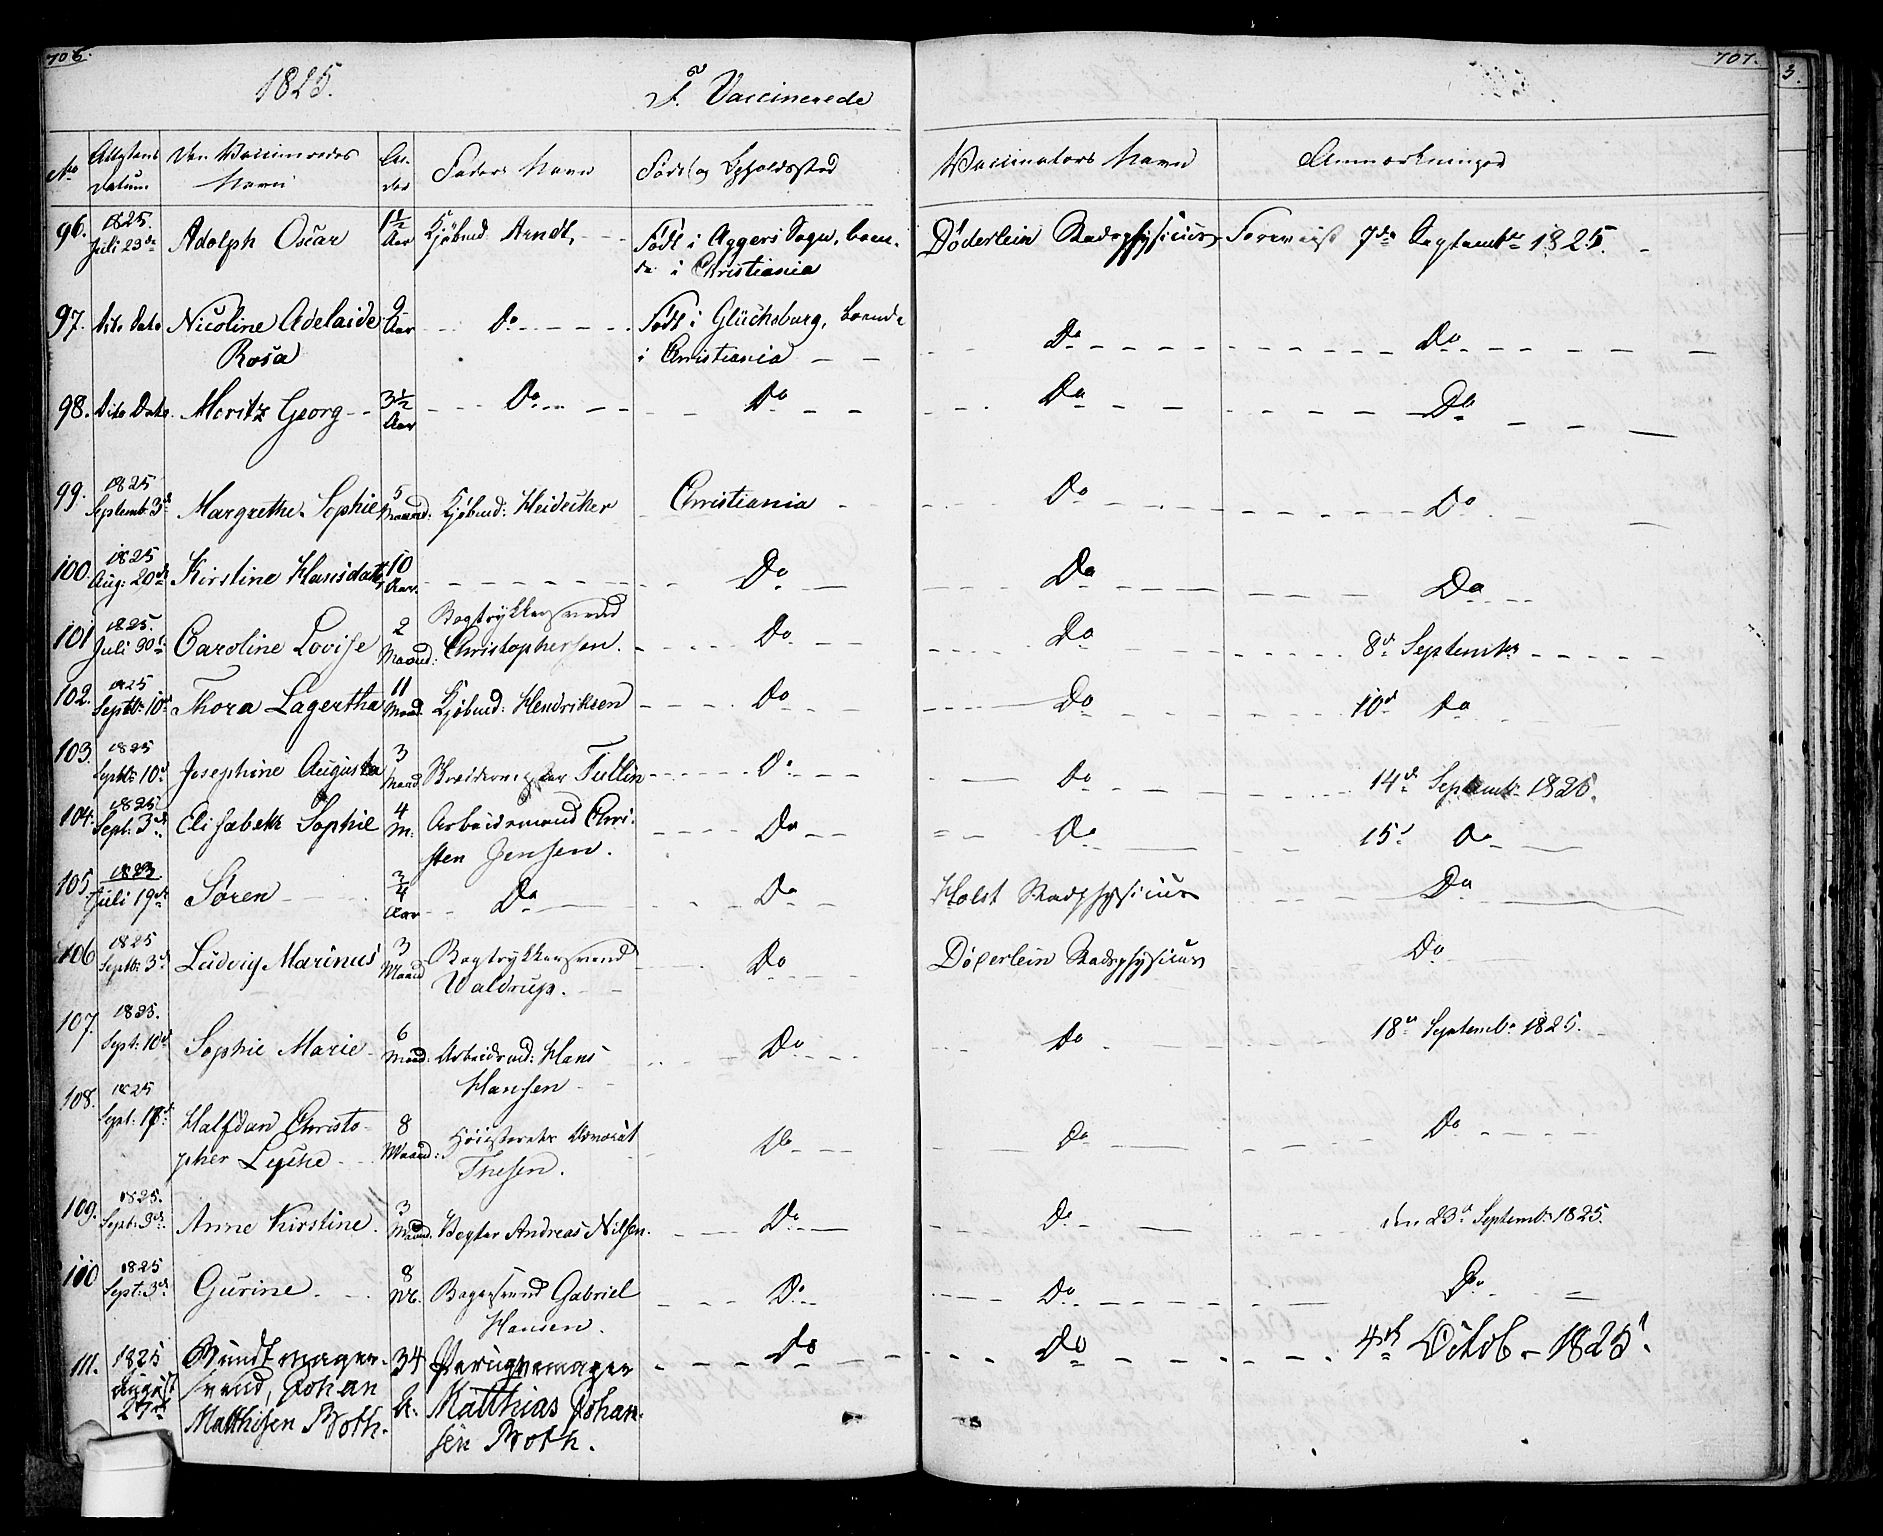 706.
1825.
F. Vaccinerede
No Attestens Datum Den Vaccineredes Navn Al- der Faders Navn Føde- og Opholdssted
96. 1825. Juli 23de Adolph Oscar 1½ Aar Kjöbmd Arndt,
Födt i Aggers Sogn, boen-
de i Christiania
97. Dito Dato Nicoline Adelaide 9 Aar Do
Rosa
Födt i Glücksburg, boende
i Christiania
98. Dito Dato Moritz Georg 3½ Aar Do Do
99. 1825 Septemb: 3d Margrethe Sophie 5 Maaned: Kjöbmd: Heidecker Christiania
100. 1825 Aug: 20de Kirstine Hansdatter 10 Aar. Do
101 1825. Juli 30te Caroline Lovise 2 Maaned: Bogtrykkersvend Christophersen. Do
102. 1825 Septbr: 10d Thora Lagertha 11 Maaned. Kjöbmd: Hendriksen Do
103. 1825 Septbr: 10d Josephine Augusta 3 Maaned Skrædermester Tullin Do
104. 1825 Sept: 3d Elisabeth Sophie 4 M: Arbeidsmand Chri-
sten Jensen. Do
105. 1823. Juli 19de Søren ¾ Aar Do Do
106 1825 Septbr: 3d Ludvig Marinus 3 Maaned Bogtrykkersvend
Waldrup. Do
107. 1825. Sept: 10d Sophie Marie 6 Maaned: Arbeidsmd: Hans
Hansen Do
108. 1825 Sept: 17d Halfdan Christo-
pher Lycke 8 Maaned: Höiesterets Advocat
Thesen. Do
109. 1825. Sept: 3d Anne Kirstine. 3 Maaned. Vegter Andreas Nilsen. Do
110 1825 Sept: 3d Gurine. 8 Bagersvend Gabriel
Hansen. Do
111. 1825 August 27de Bundtmager-
svend, Johan
Matthisen Roth. 34 A. Peruqvemager
Matthias Johan-
sen Roth. Do
707.
Vaccinators Navn Anmærkninger
Döderlein Stadsphysicus Foreviist 7de September 1825.
Do Do
Do Do
Do Do
Do Do
Do 8d Septembr
Do 10d do
Do 14d Septembr 1825.
Do 15d Do
Holst Stadsphysicus Do
Döderlein Stadsphysicus Do
Do 18d Septembr 1825.
Do Do
Do den 23d Septembr 1825.
Do Do
Do 4de Octob - 1825.
3.